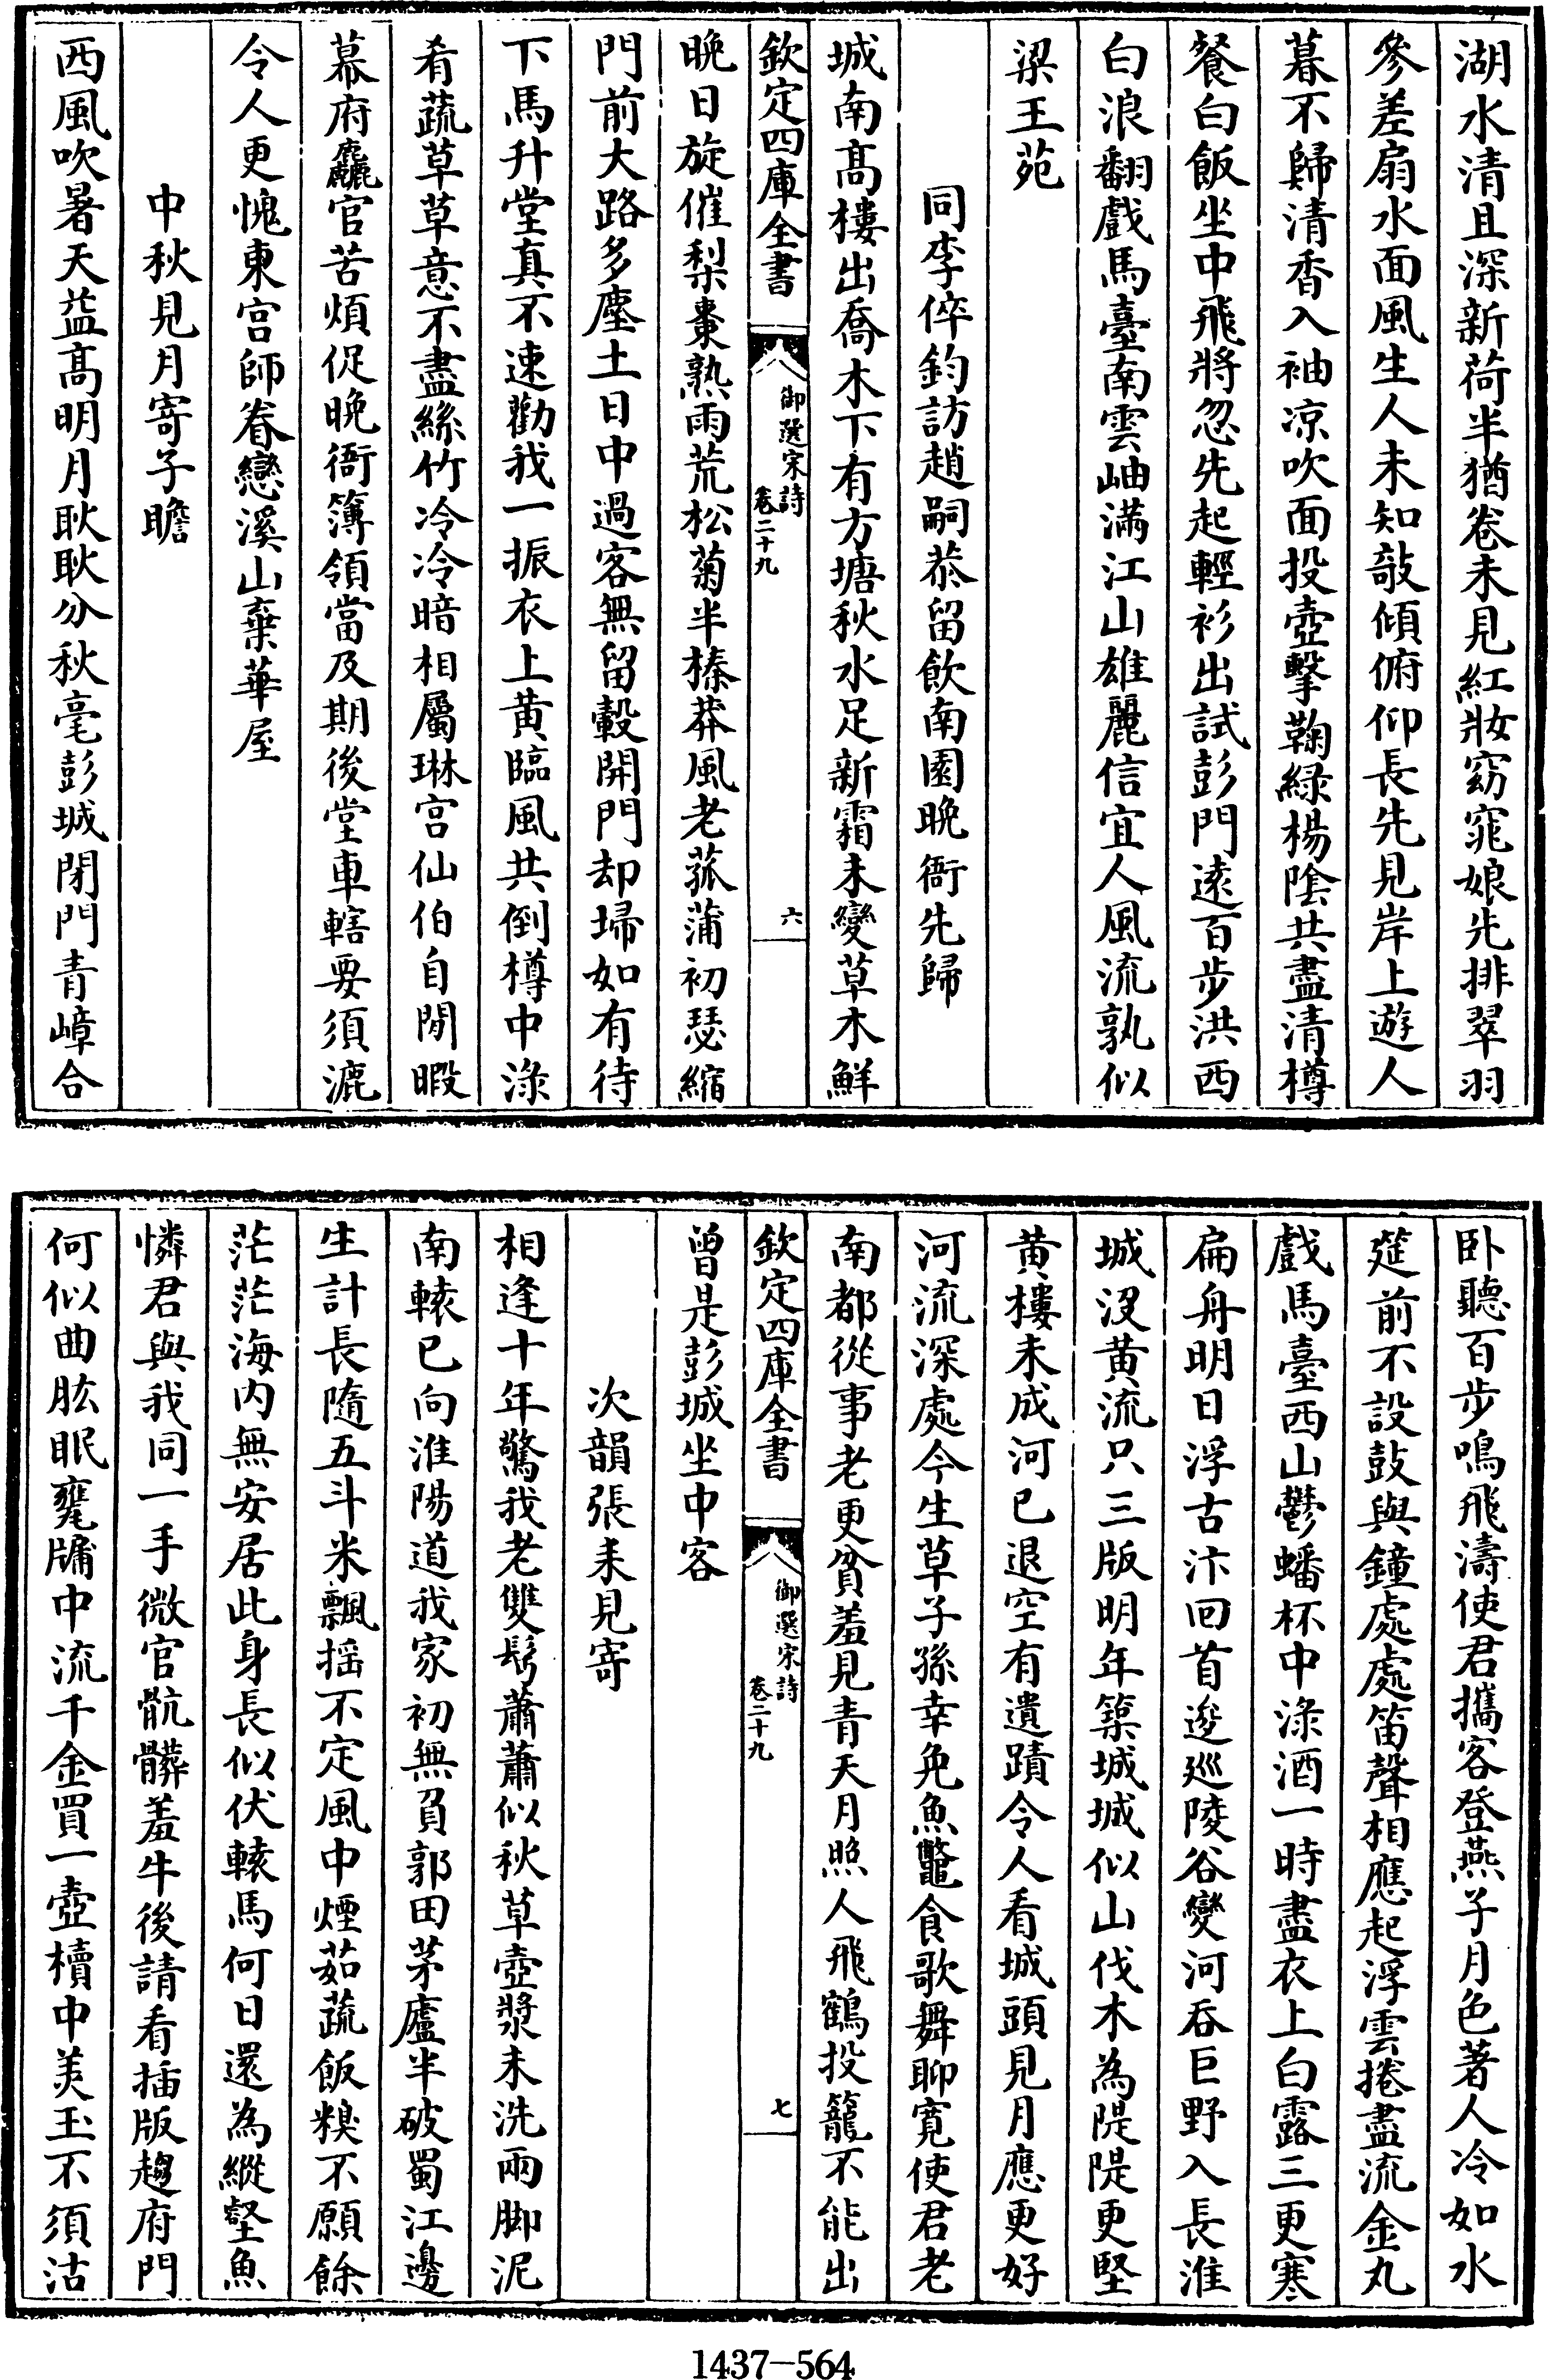 湖水清且深新荷半猶卷未見紅妝窈窕娘先排翠羽
參差扇水面風生人未知敧傾俯仰長先見岸上遊人
暮不歸清香入袖凉吹面投壺擊鞠綠楊隂共盡清樽
餐白飯坐中飛將忽先起輕衫出試彭門遠百步洪西
白浪翻戲馬臺南雲岫滿江山雄麗信宜人風流孰似
梁王苑
同李倅鈞訪趙嗣恭留飲南園晚衙先歸
城南髙樓出喬木下有方塘秋水足新霜未變草木鮮
欽定四庫全書
御選宋詩
卷二十九
六
晚日旋催梨棗熟雨荒松菊半榛莽風老菰蒲初瑟縮
門前大路多塵土日中過客無留轂開門却埽如有待
下馬升堂真不速勸我一振衣上黄臨風共倒樽中淥
肴蔬草草意不盡絲竹冷冷暗相屬琳宫仙伯自閒暇
幕府麤官苦煩促晚衙簿領當及期後堂車轄要須漉
令人更愧東宫師眷戀溪山棄華屋
中秋見月寄子瞻
西風吹暑天益髙明月耿耿分秋毫彭城閉門青嶂合
卧聽百步鳴飛濤使君攜客登燕子月色著人冷如水
筵前不設鼓與鐘處處笛聲相應起浮雲捲盡流金丸
戲馬臺西山鬱蟠杯中淥酒一時盡衣上白露三更寒
扁舟明日浮古汴回首逡巡陵谷變河吞巨野入長淮
城没黄流只三版明年築城城似山伐木為隄隄更堅
黄樓未成河已退空有遺蹟令人看城頭見月應更好
河流深處今生草子孫幸免魚鼈食歌舞聊寛使君老
南都從事老更貧羞見青天月照人飛鶴投籠不能出
欽定四庫全書
御選宋詩
卷二十九
七
曾是彭城坐中客
次韻張耒見寄
相逢十年驚我老雙鬢蕭蕭似秋草壺漿未洗兩脚泥
南轅已向淮陽道我家初無負郭田茅廬半破蜀江邊
生計長隨五斗米飄揺不定風中煙茹蔬飯糗不願餘
茫茫海内無安居此身長似伏轅馬何日還為縱壑魚
憐君與我同一手微官骯髒羞牛後請看插版趨府門
何似曲肱眠甕牖中流千金買一壺櫝中美玉不須沽
1437-564